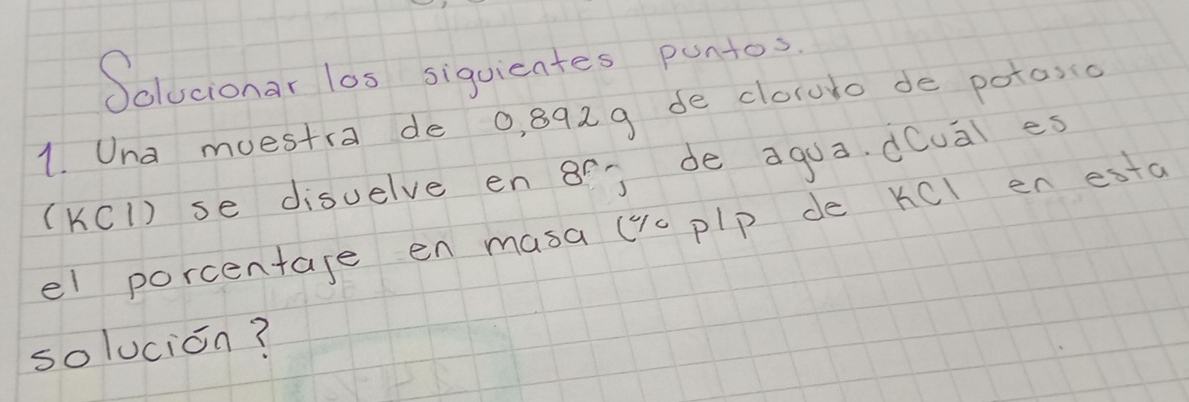 Solucionar los siguientes puntos.
1. Una muestra de 0,892g de cloruro de potasio
(KCl) se disuelve en de agua. ¿Cuál es
el porcentaje en masa (% p/p de KCl en esta
solución?